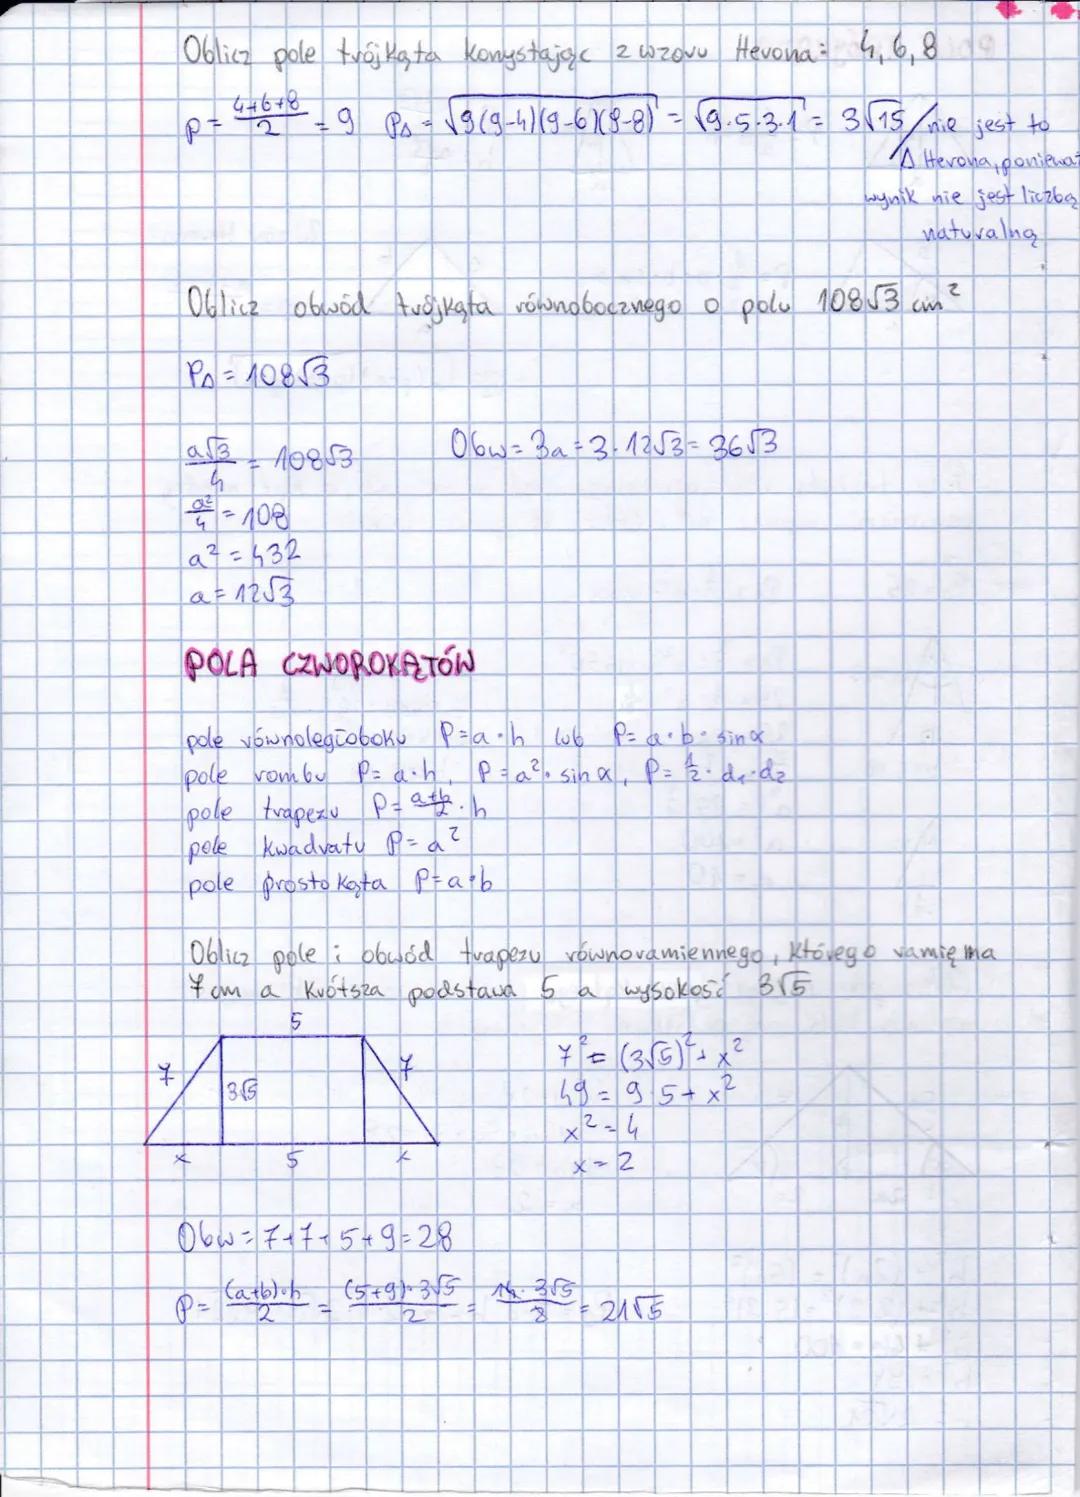 Oblicz pole trójkąta konystając z wzoru Herona: 4, 6, 8
p = \frac{4+6+8}{2} = 9 P_Δ = \sqrt{9(9-4)(9-6)(9-8)} = \sqrt{9·5·3·1} = 3\sqrt{15} / nie jest to
Δ Herona, ponieważ
wynik nie jest liczbą
naturalną
Oblicz obwód trójkąta równobocznego o polu 108√3 cm²
P_Δ = 108√3
\frac{a√3}{4} = 108√3 Obw = 3a = 3·12√3 = 36√3
\frac{a²}{4} = 108
a² = 432
a = 12√3
POLA CZWOROKĄTÓW
pole równoległoboku P = a·h lub P = a·b·sinα
pole rombu P = a·h, P = a²·sinα, P = \frac{1}{2}·d₁·d₂
pole trapezu P = \frac{a+b}{2}·h
pole kwadratu P = a²
pole prostokąta P = a·b
Oblicz pole i obwód trapezu równoramiennego, którego ramię ma
7 cm a krótsza podstawa 5 a wysokość 3√5
5
7 3√5 7
x 5 x
7² = (3√5)² + x²
49 = 9·5 + x²
x² = 4
x = 2
Obw = 7+7+5+9 = 28
P = \frac{(a+b)·h}{2} = \frac{(5+9)·3√5}{2} = \frac{14·3√5}{2} = 21√5